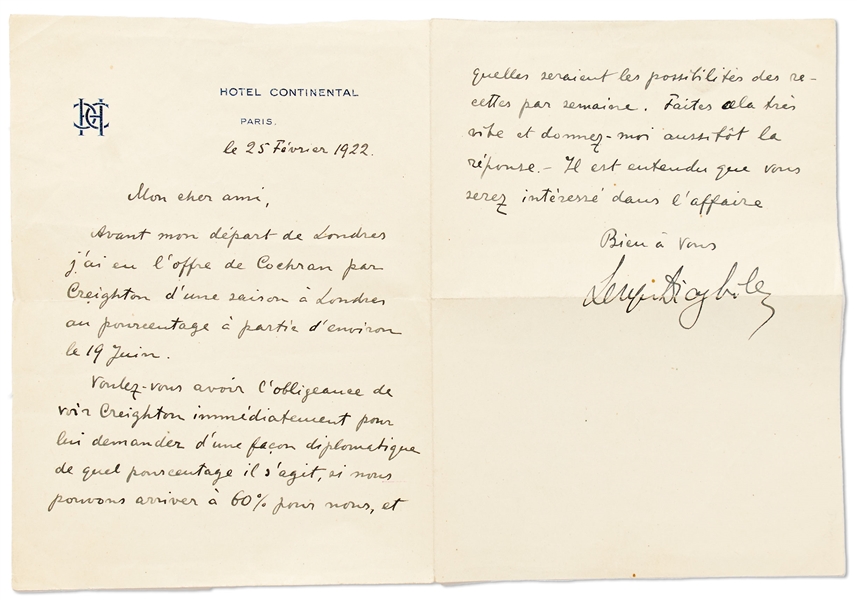 HOTEL CONTINENTAL
PARIS.
le 25 Février 1922.
Mon cher ami,
Avant mon départ de Londres
j'ai eu l'offre de Cochran par
Creighton d'une saison à Londres
au pourcentage à partie d'environ
le 19 Juin.
Voulez-vous avoir l'obligeance de
voir Creighton immédiatement pour
lui demander d'une façon diplomatique
de quel pourcentage il s'agit, si nous
pouvons arriver à 60% pour nous, et
quelles seraient les possibilités des re-
cettes par semaine. Faites cela très
vite et donnez-moi aussitôt la
réponse.- Il est entendu que vous
serez intéressé dans l'affaire
Bien à vous